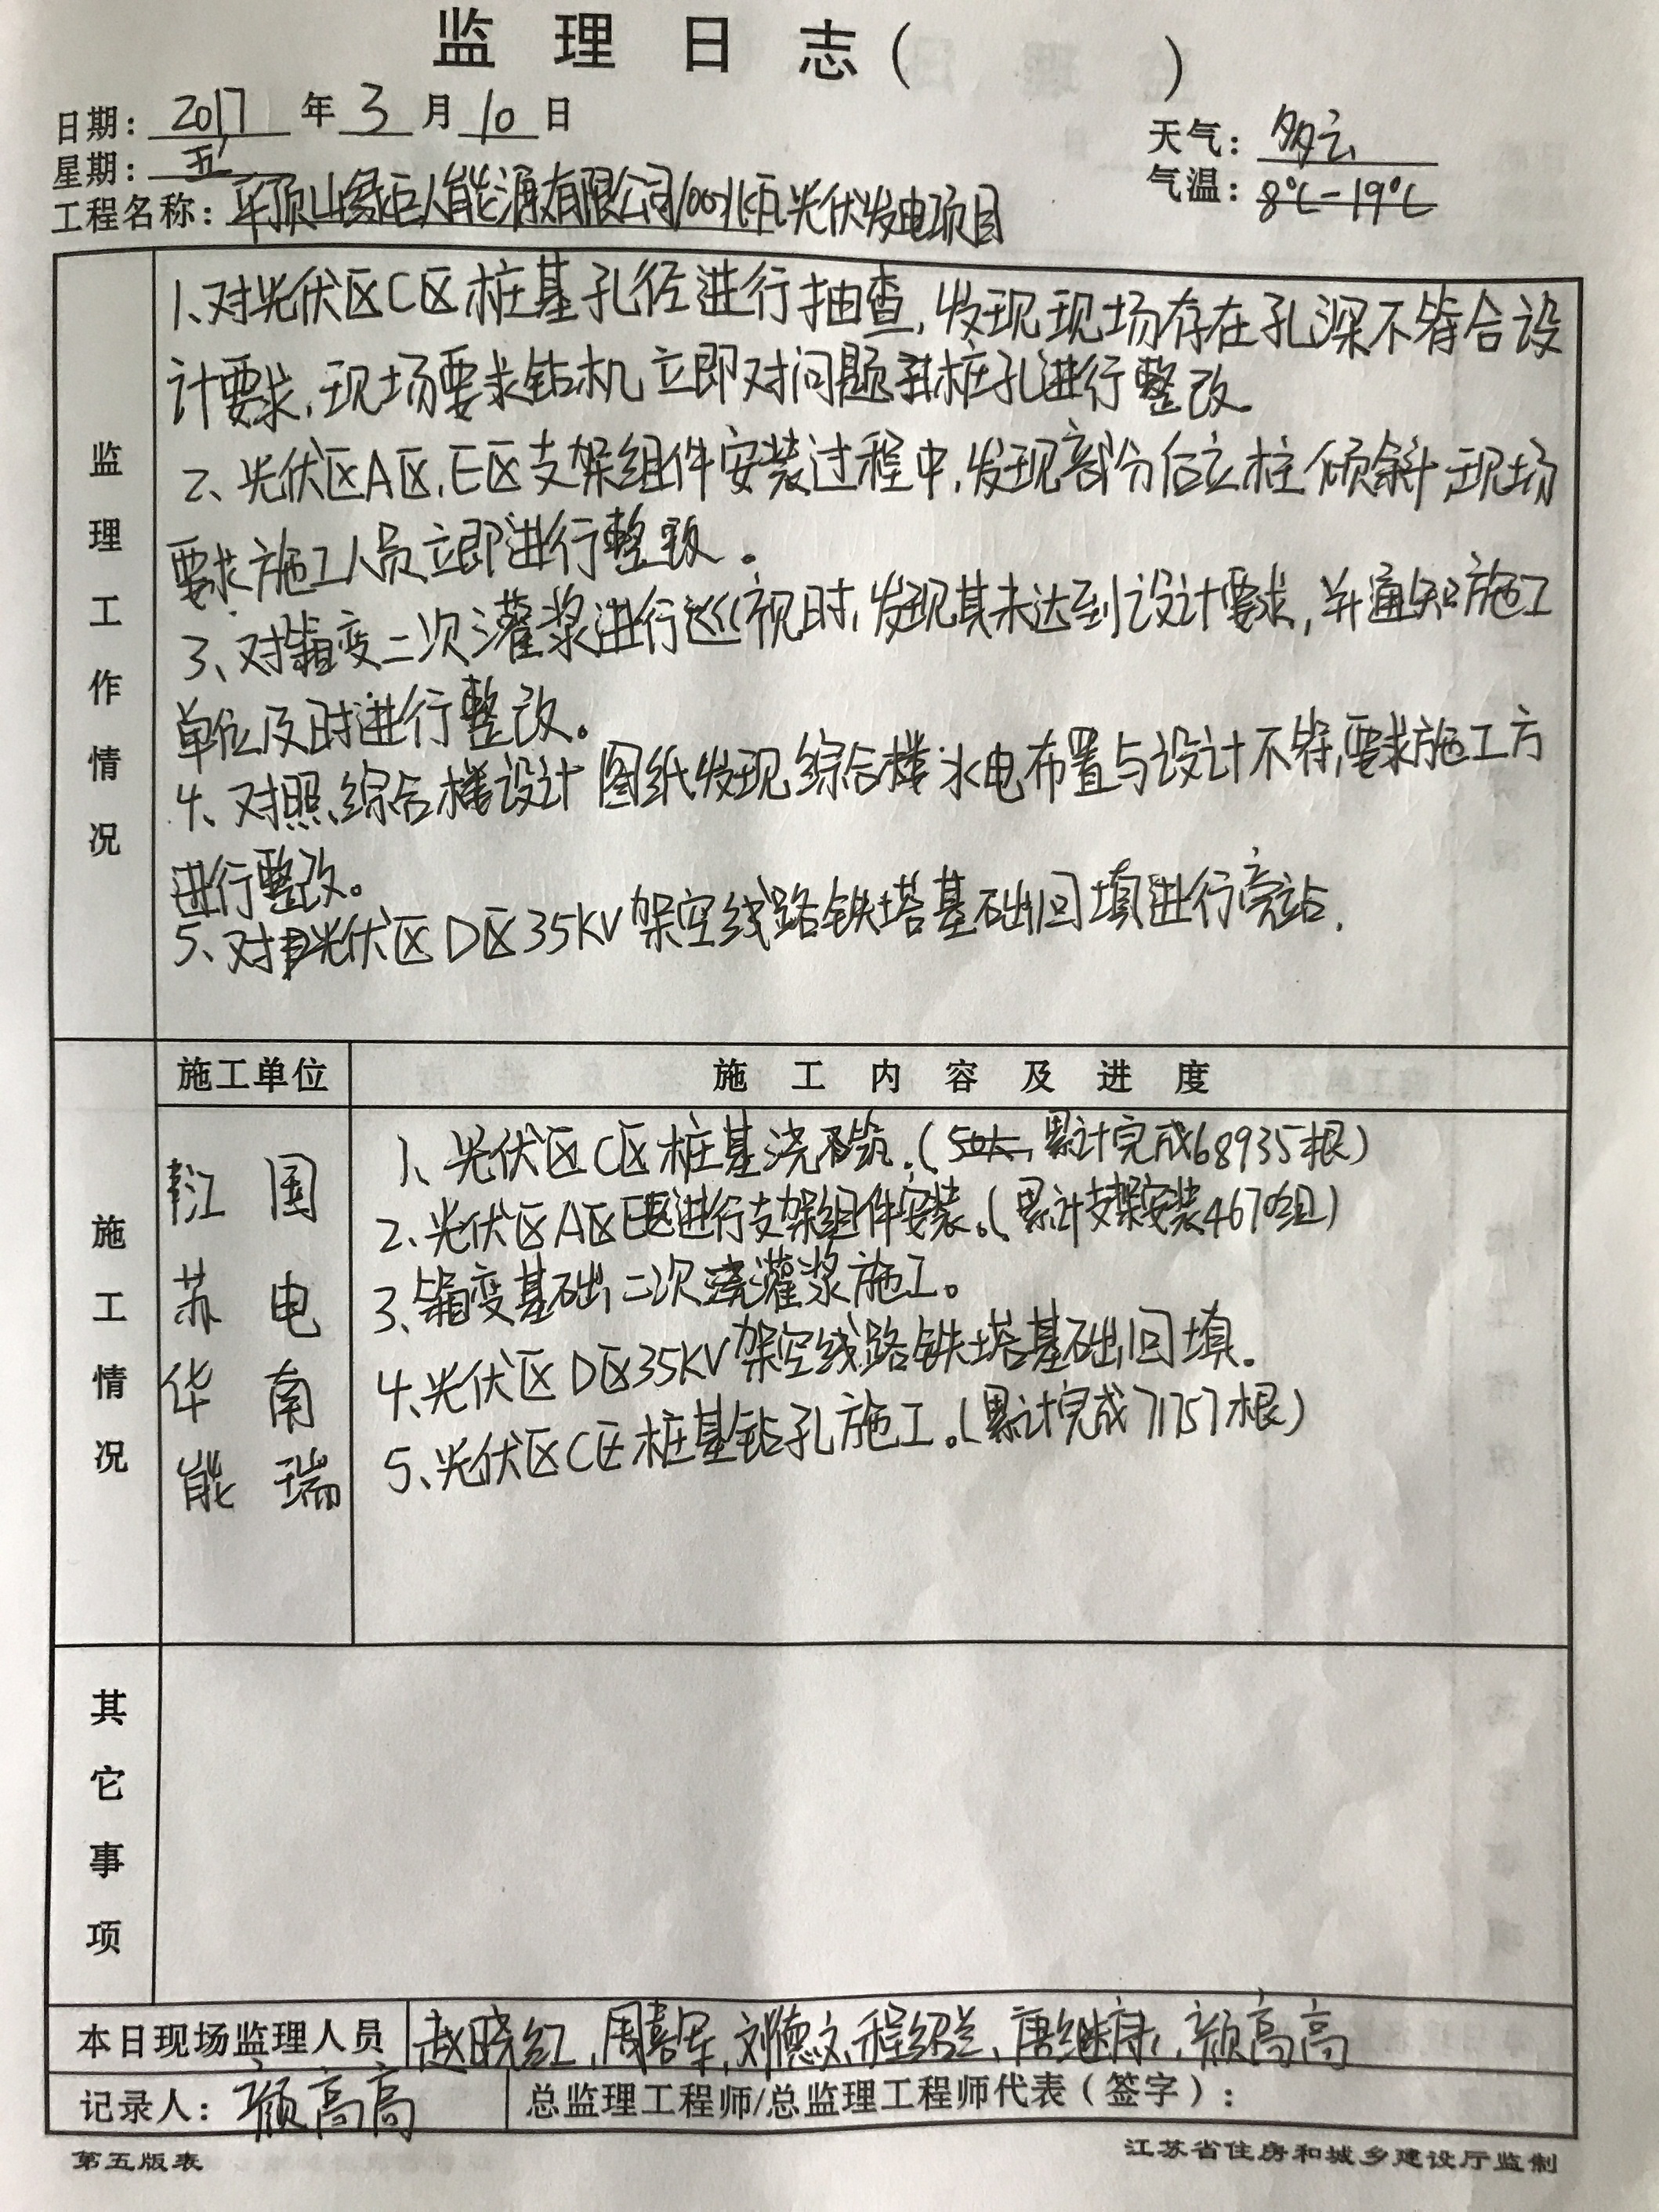 监理日志（ ）
日期：2017年3月10日
天气：多云
星期：五
气温：8℃-19℃
工程名称：平顶山绿巨人能源有限公司100兆瓦光伏发电项目
监理工作情况
1、对光伏区C区桩基孔径进行抽查,发现现场存在孔深不符合设
计要求,现场要求钻机立即对问题桩孔进行整改.
2、光伏区A区,E区支架组件安装过程中,发现部分后立柱倾斜,现场
要求施工人员立即进行整改。
3、对箱变二次灌浆进行巡视时,发现其未达到设计要求,并通知施工
单位及时进行整改。
4、对照综合楼设计图纸发现综合楼水电布置与设计不符,要求施工方
进行整改。
5、对光伏区D区35KV架空线路铁塔基础回填进行旁站.
施工情况
施工单位
施工内容及进度
江苏华能
国电南瑞
1、光伏区C区桩基浇筑.(累计完成68935根)
2、光伏区A区E区进行支架组件安装。(累计支架安装4670组)
3、箱变基础二次灌浆施工。
4、光伏区D区35KV架空线路铁塔基础回填.
5、光伏区C区桩基钻孔施工.(累计完成71757根)
其它事项
本日现场监理人员 赵晓红,周喜军,刘德文,程绍兰、唐继康,颜高高
记录人：颜高高
总监理工程师/总监理工程师代表（签字）：
第五版表
江苏省住房和城乡建设厅监制